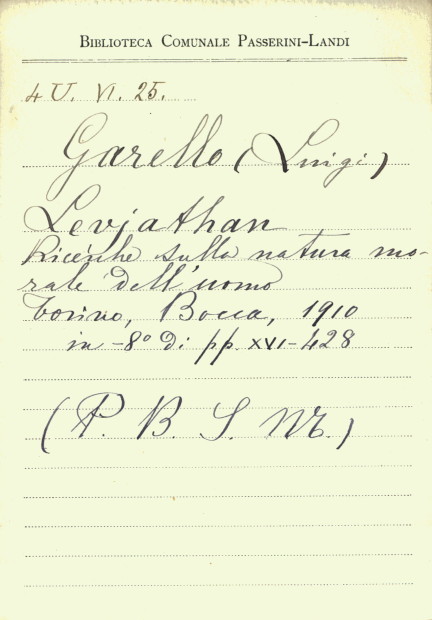 BIBLIOTECA COMUNALE PASSERINI-LANDI
4 U. VI. 25.
Garello (Luigi)
Leviathan
Ricerche sulla natura mo-
rale dell'uomo
Torino, Bocca, 1910
in-8° di pp. XVI-428
(P. B. S. M.)